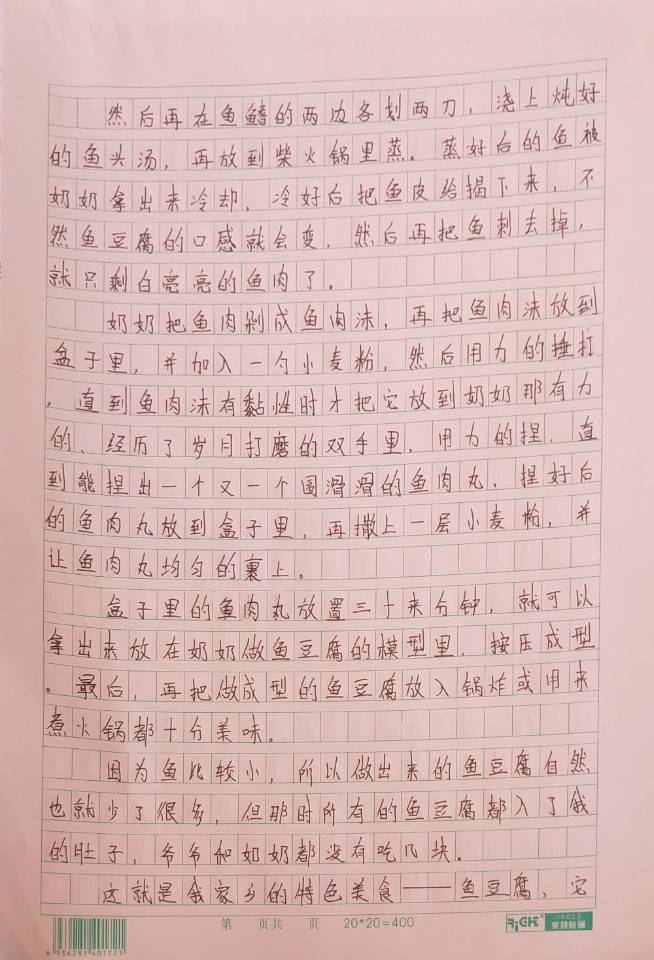 然后再在鱼鳍的两边各划两刀，浇上炖好
的鱼头汤，再放到柴火锅里蒸。蒸好后的鱼被
奶奶拿出来冷却，冷好后把鱼皮给揭下来，不
然鱼豆腐的口感就会变，然后再把鱼刺去掉，
就只剩白亮亮的鱼肉了。
奶奶把鱼肉剁成鱼肉沫，再把鱼肉沫放到
盆子里，并加入一勺小麦粉，然后用力的捶打
，直到鱼肉沫有黏性时才把它放到奶奶那有力
的、经历了岁月打磨的双手里，用力的捏，直
到能捏出一个又一个圆滑滑的鱼肉丸，捏好后
的鱼肉丸放到盒子里，再撒上一层小麦粉，并
让鱼肉丸均匀的裹上。
盒子里的鱼肉丸放置三十来分钟，就可以
拿出来放在奶奶做鱼豆腐的模型里，按压成型
。最后，再把做成型的鱼豆腐放入锅炸或用来
煮火锅都十分美味。
因为鱼比较小，所以做出来的鱼豆腐自然
也就少了很多，但那时所有的鱼豆腐都入了我
的肚子，爷爷和奶奶都没有吃几块。
这就是我家乡的特色美食——鱼豆腐，它
第 页共 页 20*20=400
6936281401721